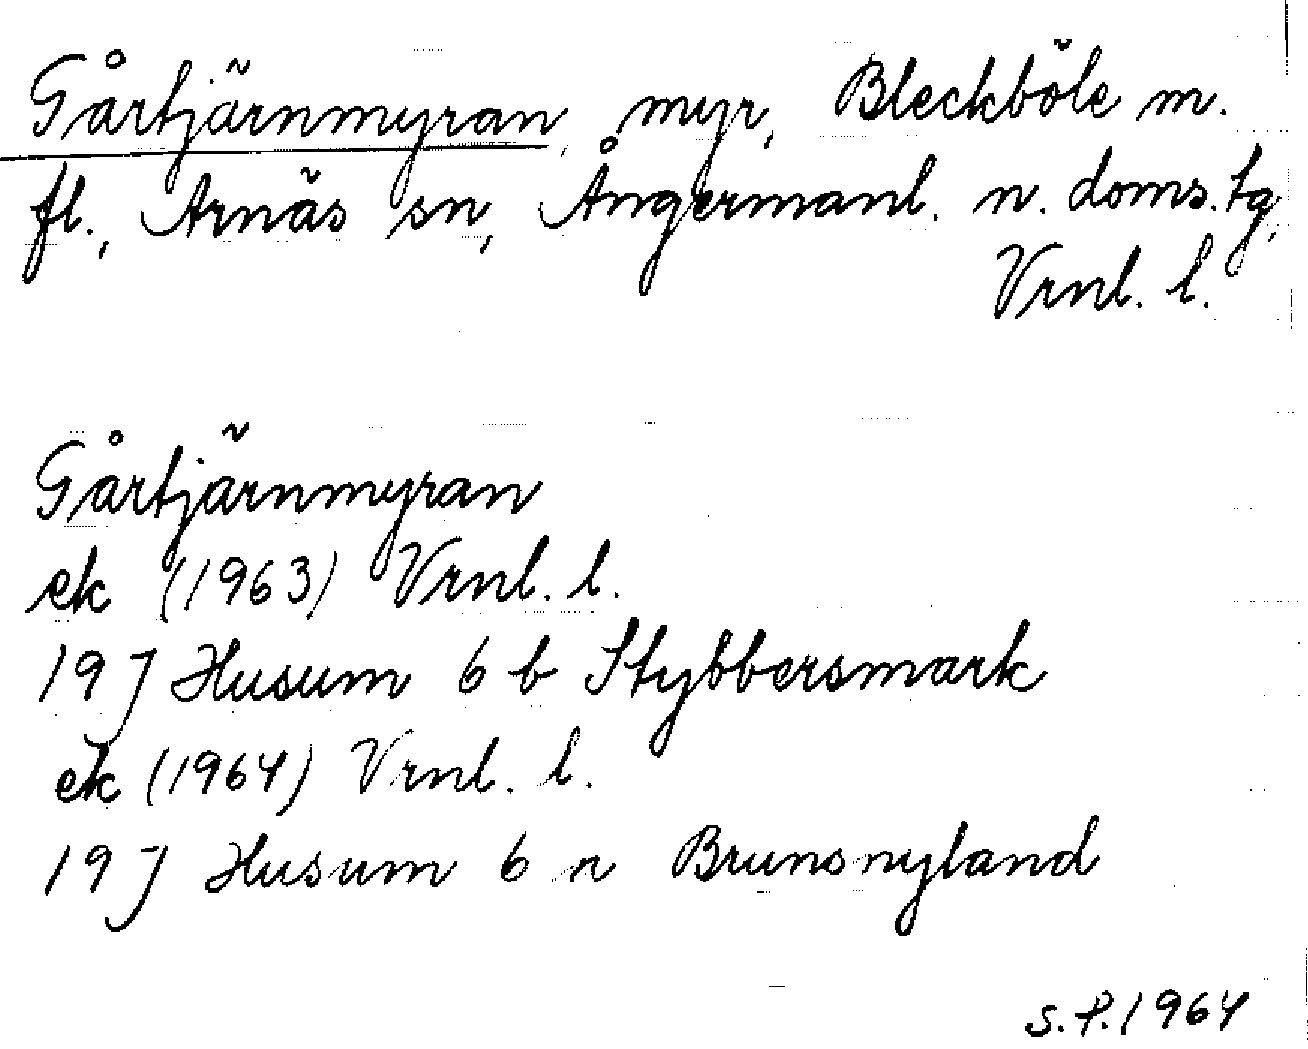 Gårtjärnmyran, myr, Bleckböle m.
fl., Arnäs sn, Ångermanl. n. doms. tg,
Vrnl. l.
Gårtjärnmyran
ek (1963) Vrnl. l.
19 J Husum 6 b Stybbersmark
ek (1964) Vrnl. l.
19 J Husum 6 a Brunsnyland
S.P. 1964